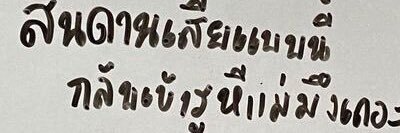 สันดานเสียแบบนี้
กลับเข้ารูหีแม่มึงเถอะ